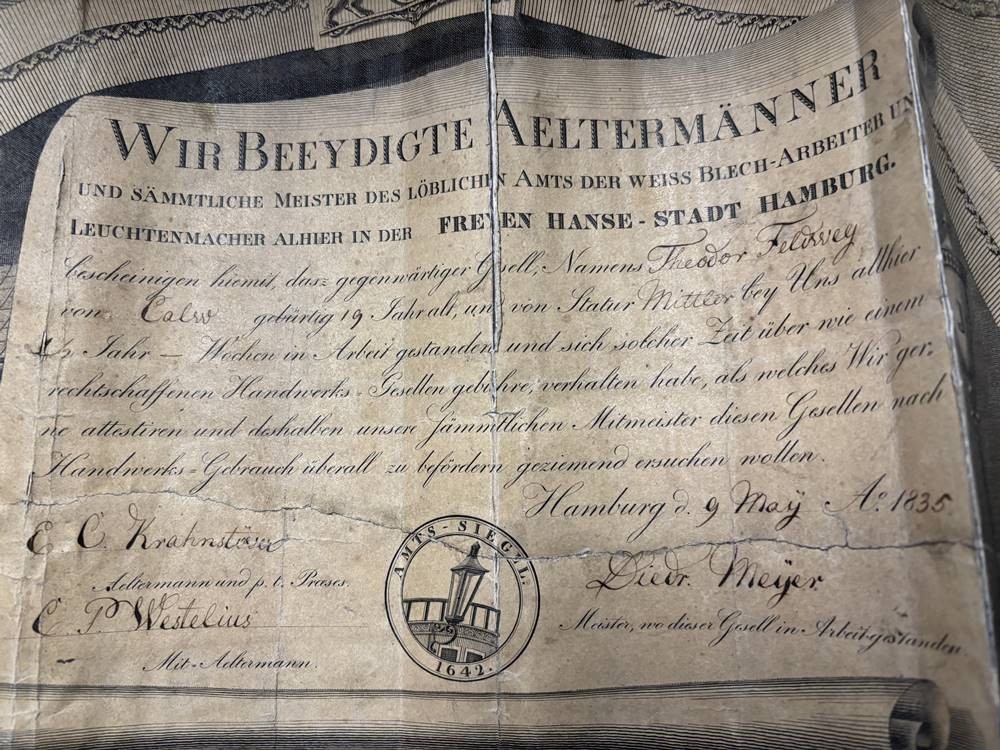 WIR BEEYDIGTE AELTERMÄNNER
UND SÄMMTLICHE MEISTER DES LÖBLICHEN AMTS DER WEISS BLECH-ARBEITER UN
LEUCHTENMACHER ALHIER IN DER FREYEN HANSE-STADT HAMBURG.
bescheinigen hiemit, dass gegenwärtiger Gsell, Namens Theodor Feldwey
von Calw gebürtig 19 Jahr alt, und von Statur Mittler bey Uns allhier
1/2 Jahr — Wochen in Arbeit gestanden und sich solcher Zeit über wie einem
rechtschaffenen Handwerks-Gesellen gebühre, verhalten habe, als welches Wir ger-
ne attestiren und deshalben unsere sämmtlichen Mitmeister diesen Gesellen nach
Handwerks-Gebrauch überall zu befördern geziemend ersuchen wollen.
Hamburg d. 9 May Aº. 1835
E C. Krahnstöver
Aeltermann und p. t. Praeses.
C P Westelius
Mit-Aeltermann.
AMTS-SIEGEL.
1642.
Diedr. Meyer
Meister, wo dieser Gesell in Arbeit gestanden.